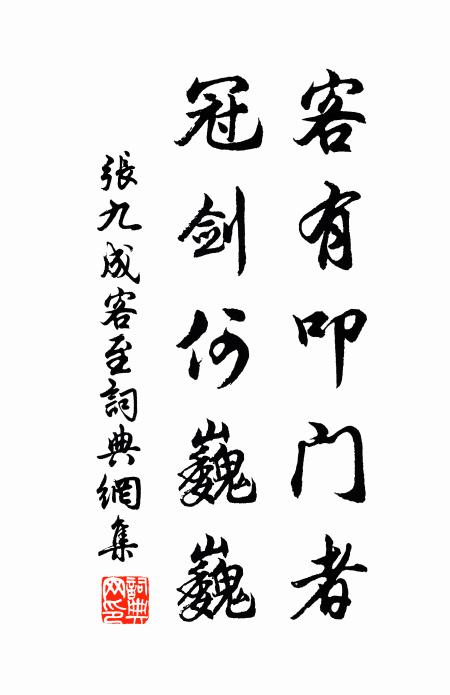 客有叩门者
冠剑何巍巍
張九成客至詞典網集
詞典
网印